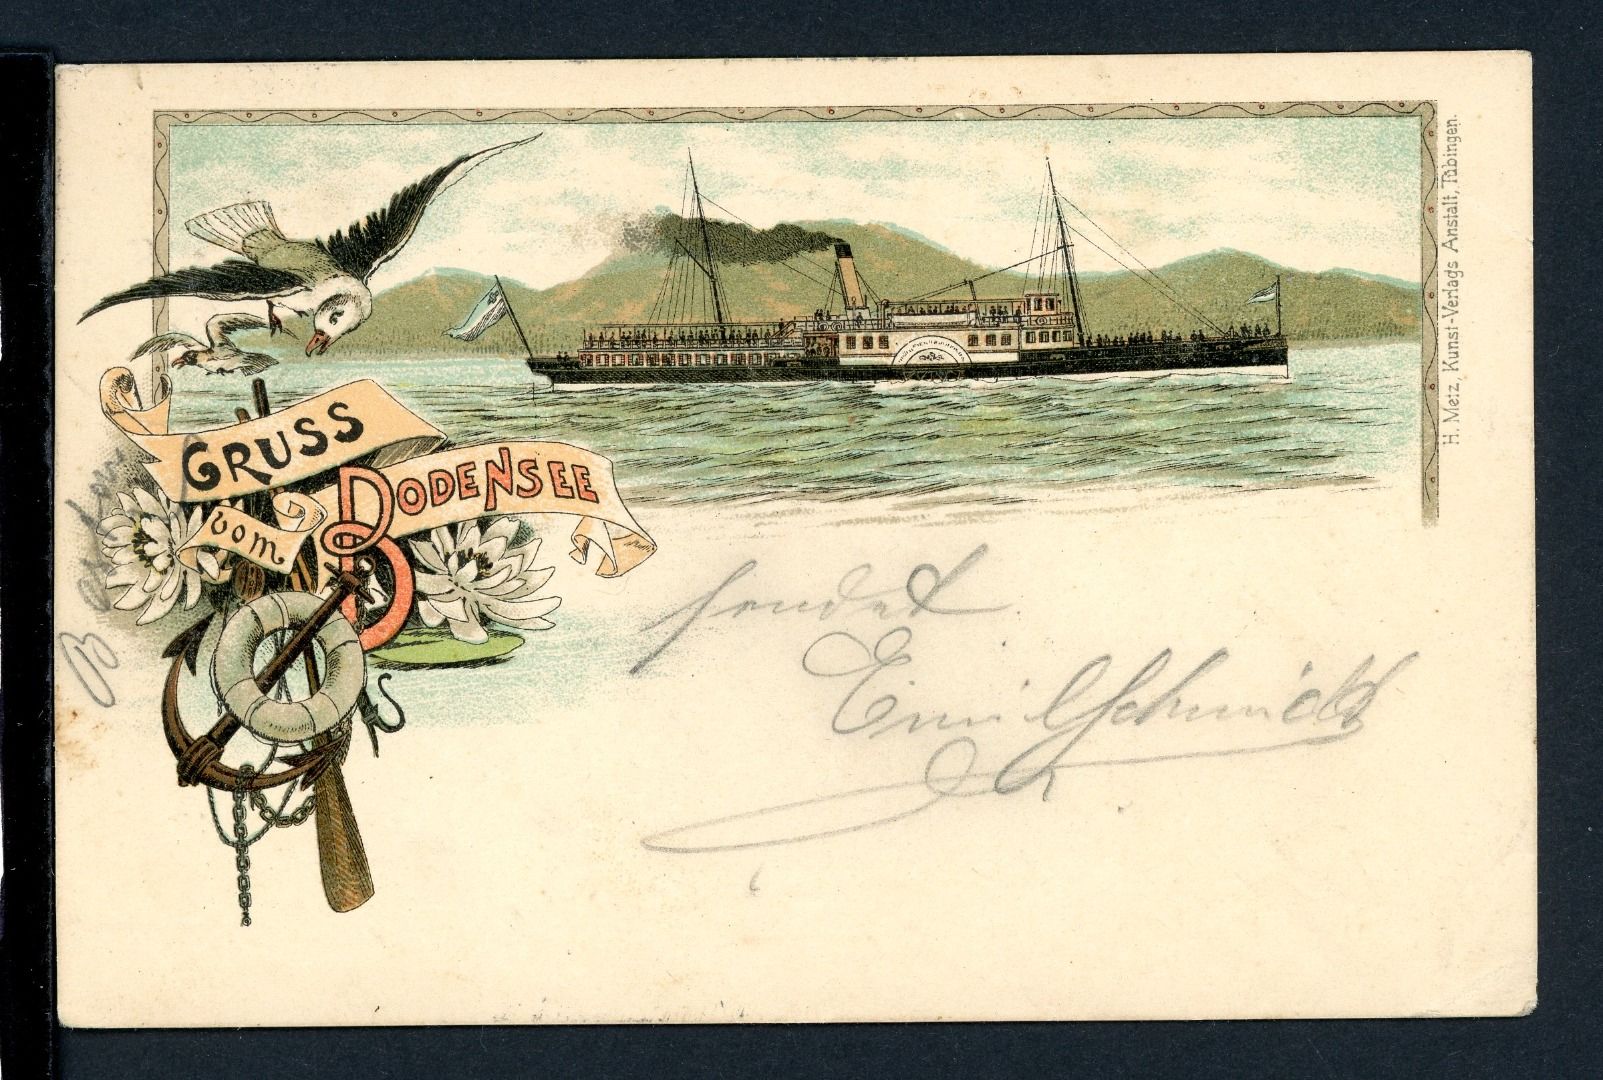 GRUSS
vom
BODENSEE
H. Metz, Kunst-Verlags Anstalt, Tübingen.
sendet
Emil Schmidt